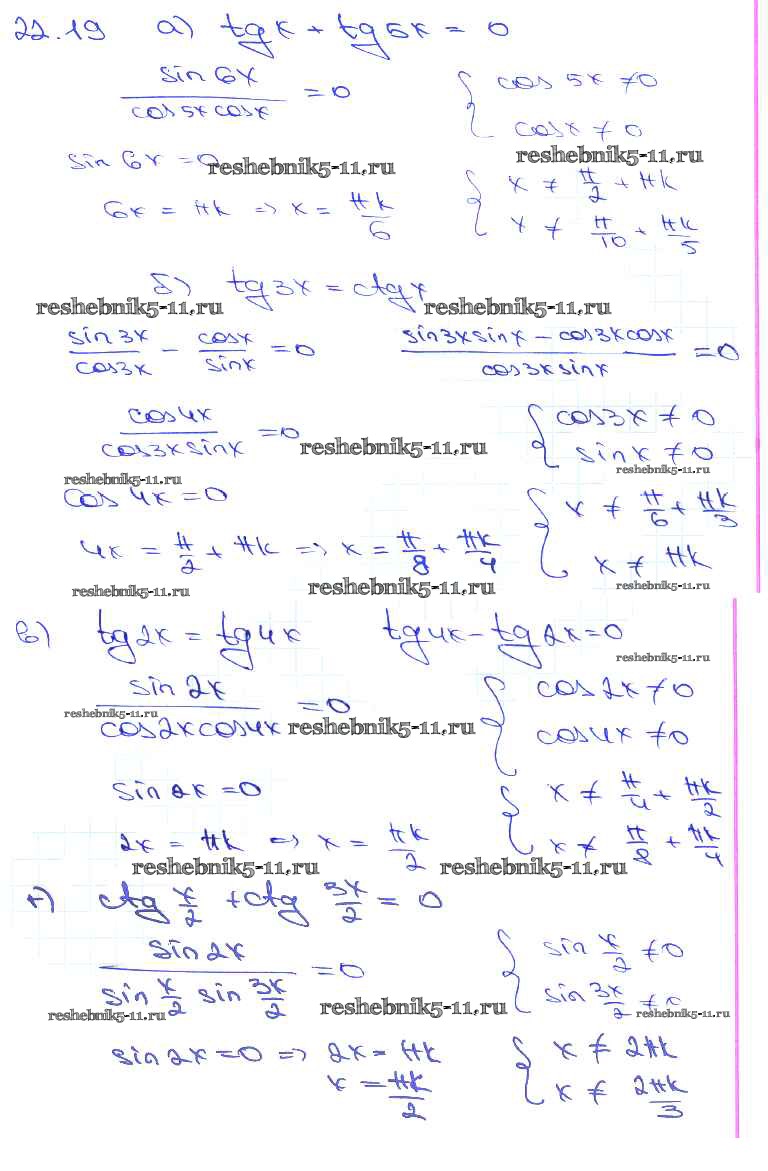 22.19 а) tgx + tg5x = 0
sin6x / cos5x cosx = 0 { cos 5x ≠ 0
cosx ≠ 0
sin 6x = 0 reshebnik5-11.ru reshebnik5-11.ru
6x = πk => x = πk/6 { x ≠ π/2 + πk
x ≠ π/10 + πk/5
б) tg3x = ctgx
reshebnik5-11.ru reshebnik5-11.ru
sin3x/cos3x - cosx/sinx = 0 sin3x sinx - cos3x cosx / cos3x sinx = 0
cos4x / cos3x sinx = 0 reshebnik5-11.ru { cos3x ≠ 0
sinx ≠ 0
reshebnik5-11.ru reshebnik5-11.ru
cos 4x = 0 { x ≠ π/6 + πk/3
4x = π/2 + πk => x = π/8 + πk/4 x ≠ πk
reshebnik5-11.ru reshebnik5-11.ru reshebnik5-11.ru
в) tg2x = tg4x tg4x - tg2x = 0
reshebnik5-11.ru
sin2x / cos2x cos4x = 0 { cos2x ≠ 0
cos4x ≠ 0
reshebnik5-11.ru reshebnik5-11.ru
sin2x = 0 { x ≠ π/4 + πk/2
2x = πk => x = πk/2 x ≠ π/8 + πk/4
reshebnik5-11.ru reshebnik5-11.ru
г) ctg x/2 + ctg 3x/2 = 0
sin2x / sin x/2 sin 3x/2 = 0 { sin x/2 ≠ 0
sin 3x/2 ≠ 0
reshebnik5-11.ru reshebnik5-11.ru reshebnik5-11.ru
sin2x = 0 => 2x = πk { x ≠ 2πk
x = πk/2 x ≠ 2πk/3